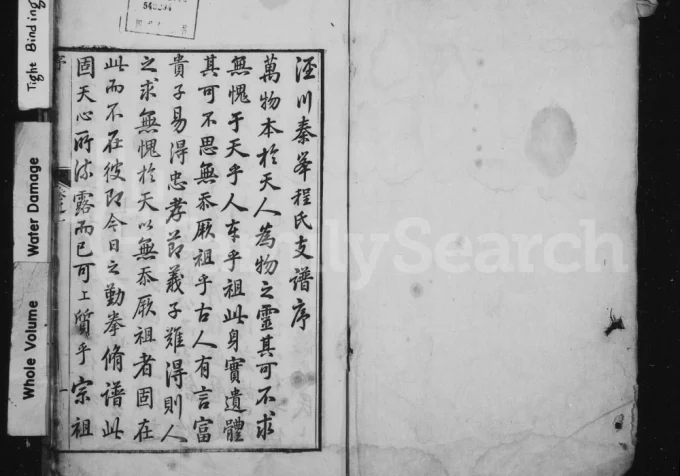 涇川秦峯程氏支譜序
萬物本於天人為物之靈其可不求
無愧于天乎人本乎祖此身實遺體
其可不思無忝厥祖乎古人有言富
貴子易得忠孝節義子難得則人
之求無愧於天以無忝厥祖者固在
此而不在彼即今日之勤拳脩譜此
固天心所流露而已可上質乎宗祖
序
一
Tight Binding
Water Damage
Whole Volume
FamilySearch